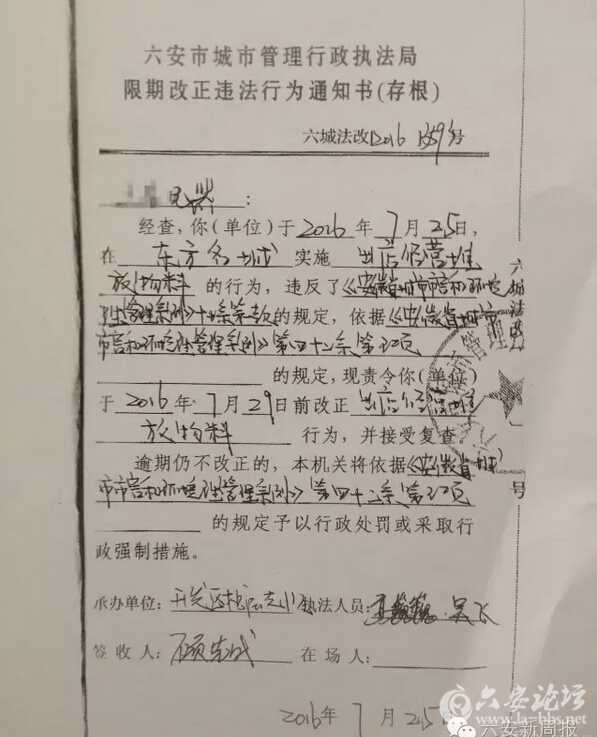 六安市城市管理行政执法局
限期改正违法行为通知书(存根)
六城法改2016 1359号
:
经查,你(单位)于2016年7月25日,
在 东方名城 实施 出店经营堆
放物料 的行为,违反了《安徽省城市市容和环境
卫生管理条例》十条第款的规定,依据《安徽省城市
市容和环境卫生管理条例》第四十二条第 项
的规定,现责令你(单位)
于2016年7月29日前改正 出店经营堆
放物料 行为,并接受复查。
逾期仍不改正的,本机关将依据《安徽省城
市市容和环境卫生管理条例》第四十二条第 项
的规定予以行政处罚或采取行
政强制措施。
承办单位: 开发区 执法人员: 吴飞
签收人: 顾先成 在场人:
2016年7月25
六城法改
号
市管理行
六安论坛
www.la-bbs.net
六安新周报